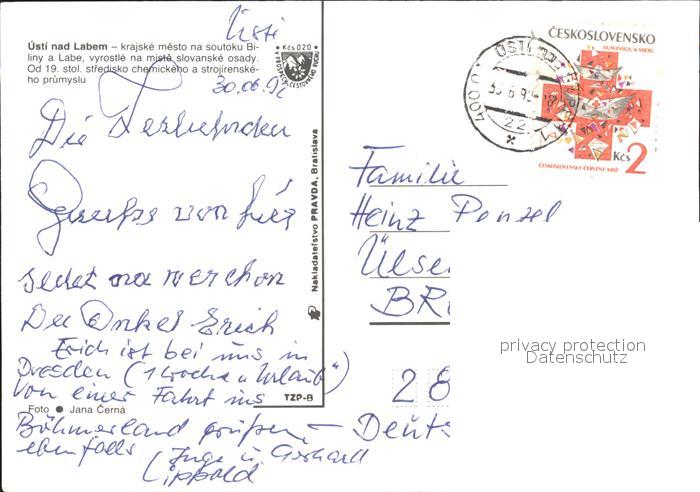 Ústi
Ústí nad Labem – krajské město na soutoku Bí-
liny a Labe, vyrostlé na místě slovanské osady.
Od 19. stol. středisko chemického a strojírenské-
ho průmyslu
Kčs 0,20
30.06.92
Die
von hier
sendet
Der Onkel Erich
Erich ist bei uns in
Dresden (1 Woche „Urlaub")
Von einer Fahrt ins
Böhmerland grüßen
ebenfalls Inge u. Gerhard
Lippold
Foto ● Jana Černá
Nakladatelství PRAVDA, Bratislava
TZP-B
ČESKOSLOVENSKO
HUMANITOU K MÍRU
Kčs 2
ČESKOSLOVENSKÝ ČERVENÝ KŘÍŽ
ÚSTÍ n.
400 01
22
Familie
Heinz Penzel
Ülsen
BR
28
Deuts
privacy protection
Datenschutz